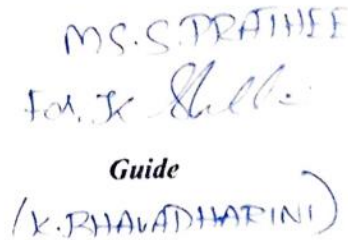 MS.S.PRATHEE
For. K
Guide
(K.BHAVADHARINI)